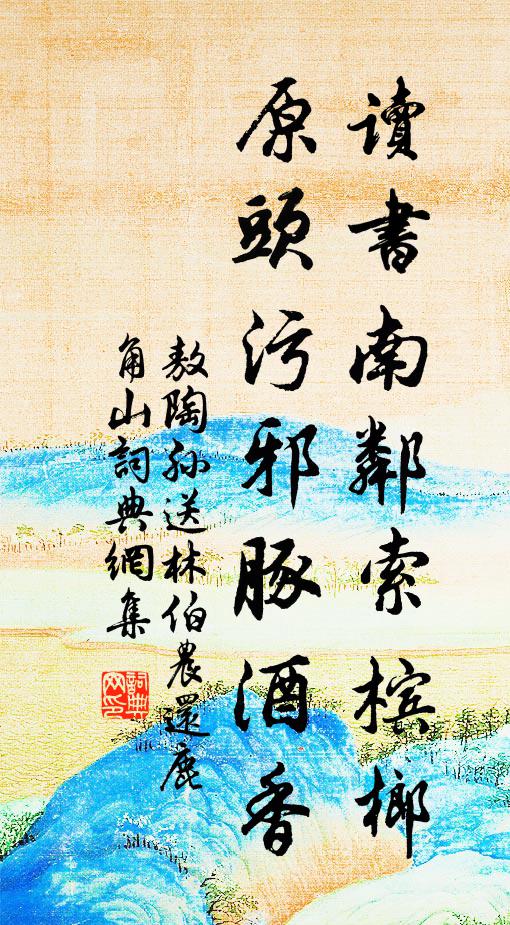 讀書南鄰索檳榔
原頭污邪豚酒香
敖陶孫送林伯農還鹿
角山詞典網集
詞典網印